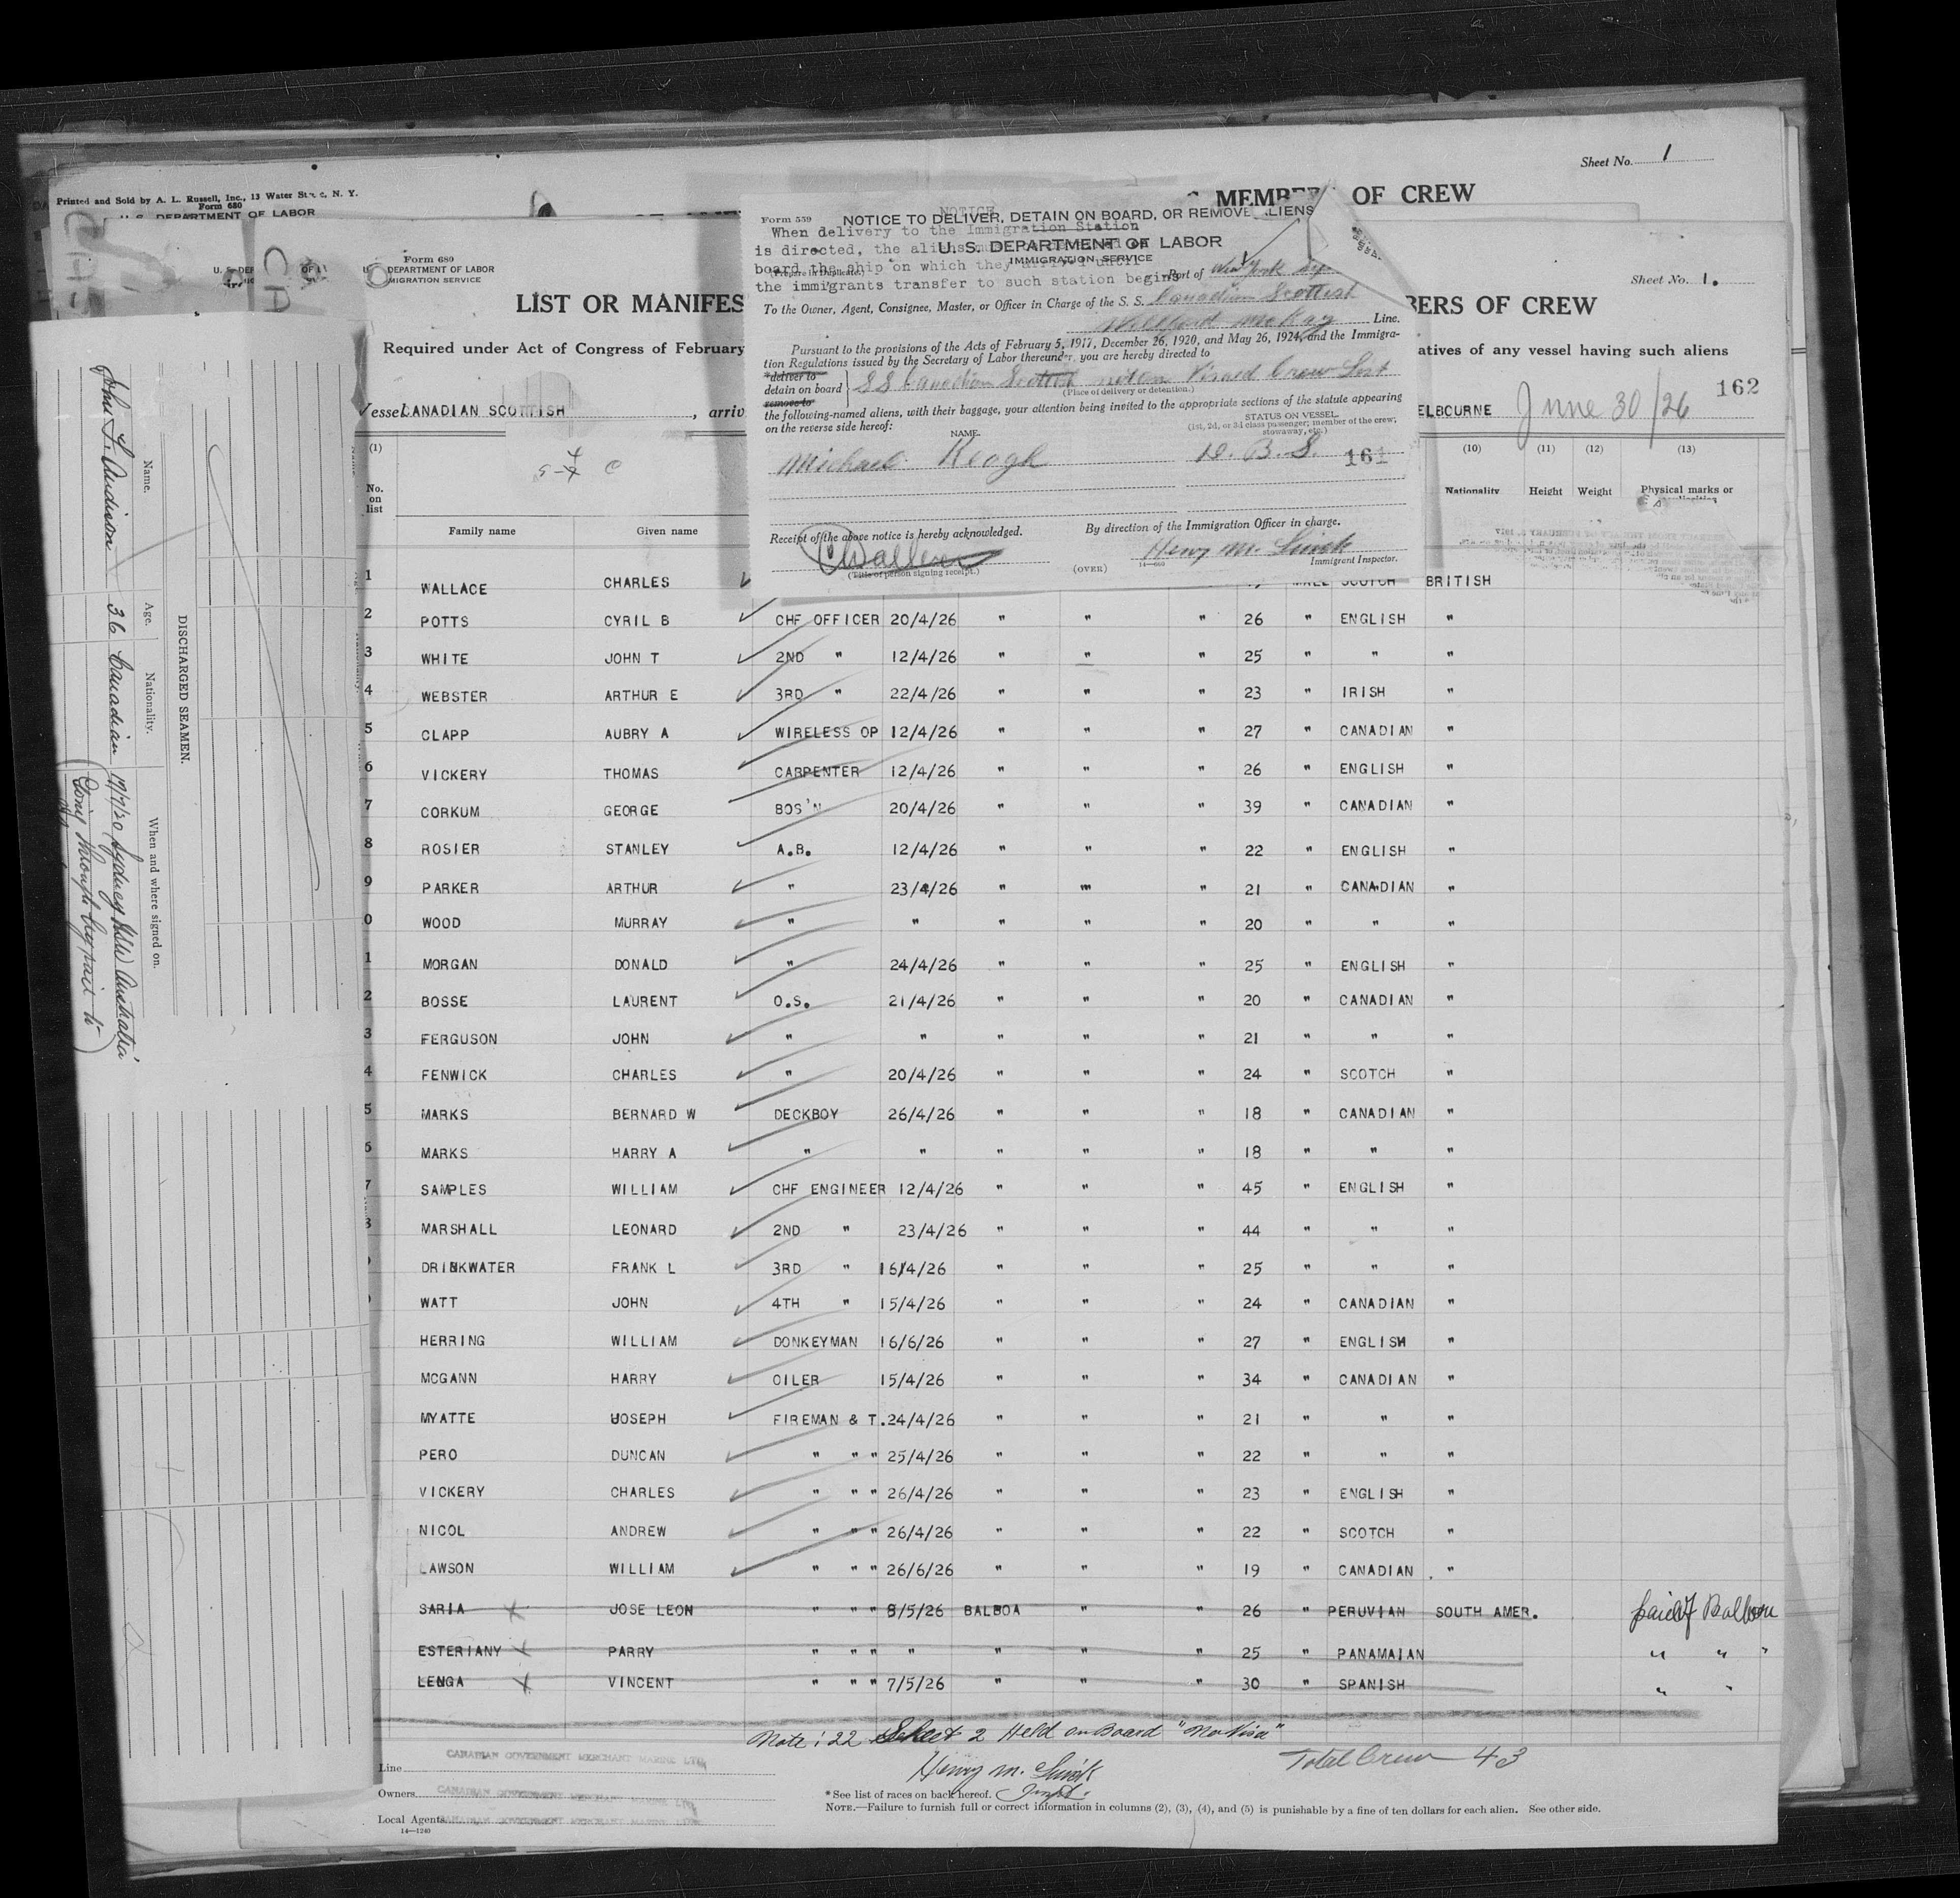 Sheet No. 1
Printed and Sold by A. L. Russell, Inc., 13 Water N. Y.
Form 680
U. S. DEPARTMENT OF LABOR
MEMBER OF CREW
Form 680
DEPARTMENT OF LABOR
MIGRATION SERVICE
Sheet No. 1.
LIST OR MANIFES
BERS OF CREW
Required under Act of Congress of February
atives of any vessel having such aliens
162
Vessel CANADIAN SCOTTISH, arriv
ELBOURNE June 30/26
Form 559
NOTICE TO DELIVER, DETAIN ON BOARD, OR REMOVE ALIENS
NOTICE
When delivery to the Immigration Station
is directed, the aliens
U. S. DEPARTMENT OF LABOR
IMMIGRATION SERVICE
board the ship on which they arrived until
(Prepare in Duplicate)
the immigrants transfer to such station begins
Port of New York
To the Owner, Agent, Consignee, Master, or Officer in Charge of the S. S. Canadian Scottish
McKay Line.
Pursuant to the provisions of the Acts of February 5, 1917, December 26, 1920, and May 26, 1924, and the Immigra-
tion Regulations issued by the Secretary of Labor thereunder, you are hereby directed to
*deliver to
detain on board
remove to
SS Canadian Scottish not on Visaed Crew List
(Place of delivery or detention.)
the following-named aliens, with their baggage, your attention being invited to the appropriate sections of the statute appearing
on the reverse side hereof:
STATUS ON VESSEL
(1st, 2d, or 3d class passenger; member of the crew;
stowaway, etc.)
NAME.
Michael Keogh D. B. S. 161
Receipt of the above notice is hereby acknowledged.
By direction of the Immigration Officer in charge.
CWallace
Henry M. Smick
(Title of person signing receipt.)
(OVER)
14—660
Immigrant Inspector.
(1) (10) (11) (12) (13)
No. on list
Family name Given name Nationality Height Weight Physical marks or
1 WALLACE CHARLES MALE SCOTCH BRITISH
2 POTTS CYRIL B CHF OFFICER 20/4/26 " " " 26 " ENGLISH "
3 WHITE JOHN T 2ND " 12/4/26 " " " 25 " " "
4 WEBSTER ARTHUR E 3RD " 22/4/26 " " " 23 " IRISH "
5 CLAPP AUBRY A WIRELESS OP 12/4/26 " " " 27 " CANADIAN "
6 VICKERY THOMAS CARPENTER 12/4/26 " " " 26 " ENGLISH "
7 CORKUM GEORGE BOS'N 20/4/26 " " " 39 " CANADIAN "
8 ROSIER STANLEY A.B. 12/4/26 " " " 22 " ENGLISH "
9 PARKER ARTHUR " 23/4/26 " " " 21 " CANADIAN "
0 WOOD MURRAY " " " " " 20 " " "
1 MORGAN DONALD " 24/4/26 " " " 25 " ENGLISH "
2 BOSSE LAURENT O.S. 21/4/26 " " " 20 " CANADIAN "
3 FERGUSON JOHN " " " " " 21 " " "
4 FENWICK CHARLES " 20/4/26 " " " 24 " SCOTCH "
5 MARKS BERNARD W DECKBOY 26/4/26 " " " 18 " CANADIAN "
6 MARKS HARRY A " " " " " 18 " " "
7 SAMPLES WILLIAM CHF ENGINEER 12/4/26 " " " 45 " ENGLISH "
8 MARSHALL LEONARD 2ND " 23/4/26 " " " 44 " " "
DRINKWATER FRANK L 3RD " 16/4/26 " " " 25 " " "
WATT JOHN 4TH " 15/4/26 " " " 24 " CANADIAN "
HERRING WILLIAM DONKEYMAN 16/6/26 " " " 27 " ENGLISH "
MCGANN HARRY OILER 15/4/26 " " " 34 " CANADIAN "
MYATTE JOSEPH FIREMAN & T. 24/4/26 " " " 21 " " "
PERO DUNCAN " " " 25/4/26 " " " 22 " " "
VICKERY CHARLES " " " 26/4/26 " " " 23 " ENGLISH "
NICOL ANDREW " " " 26/4/26 " " " 22 " SCOTCH "
LAWSON WILLIAM " " " 26/6/26 " " " 19 " CANADIAN "
SARIA JOSE LEON " " " 8/5/26 BALBOA " " 26 " PERUVIAN SOUTH AMER. Paid off Balboa
ESTERIANY PARRY " " " " " " " 25 " PANAMAIAN " " "
LENGA VINCENT " " " 7/5/26 " " " 30 " SPANISH " "
Note: 22 Sheet 2 Held on Board "No Visa"
Henry M. Smick
Inspt.
Total Crew 43
Line CANADIAN GOVERNMENT MERCHANT MARINE LTD
Owners CANADIAN GOVERNMENT MERCHANT MARINE LTD
Local Agents CANADIAN GOVERNMENT MERCHANT MARINE LTD
14—1240
*See list of races on back hereof.
NOTE.—Failure to furnish full or correct information in columns (2), (3), (4), and (5) is punishable by a fine of ten dollars for each alien. See other side.
DISCHARGED SEAMEN.
Name. Age. Nationality. When and where signed on.
John F. Andison 36 Canadian Sydney NSW Australia